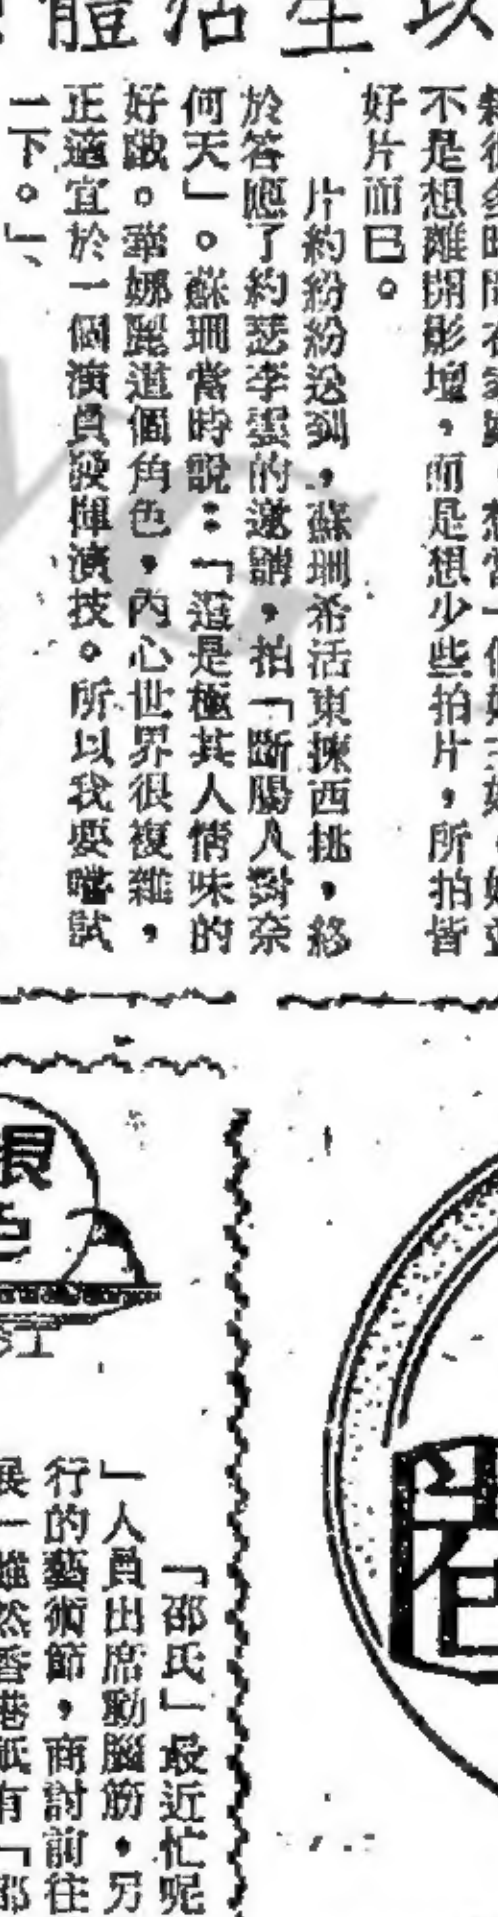 以生活體
不是想離開影壇，而是想少些拍片，所拍皆
好片而已。
片約紛紛送到，蘇珊希活東揀西挑，終
於答應了約瑟李雲的邀請，拍「斷腸人對奈
何天」。蘇珊當時說：「這是極其人情味的
好戲。華娜麗這個角色，內心世界很複雜，
正適宜於一個演員發揮演技。所以我要嚐試
一下。」
「邵氏」最近忙呢
」人員出席動腦筋，另
行的藝術節，商討前往
展—雖然香港祇有「邵